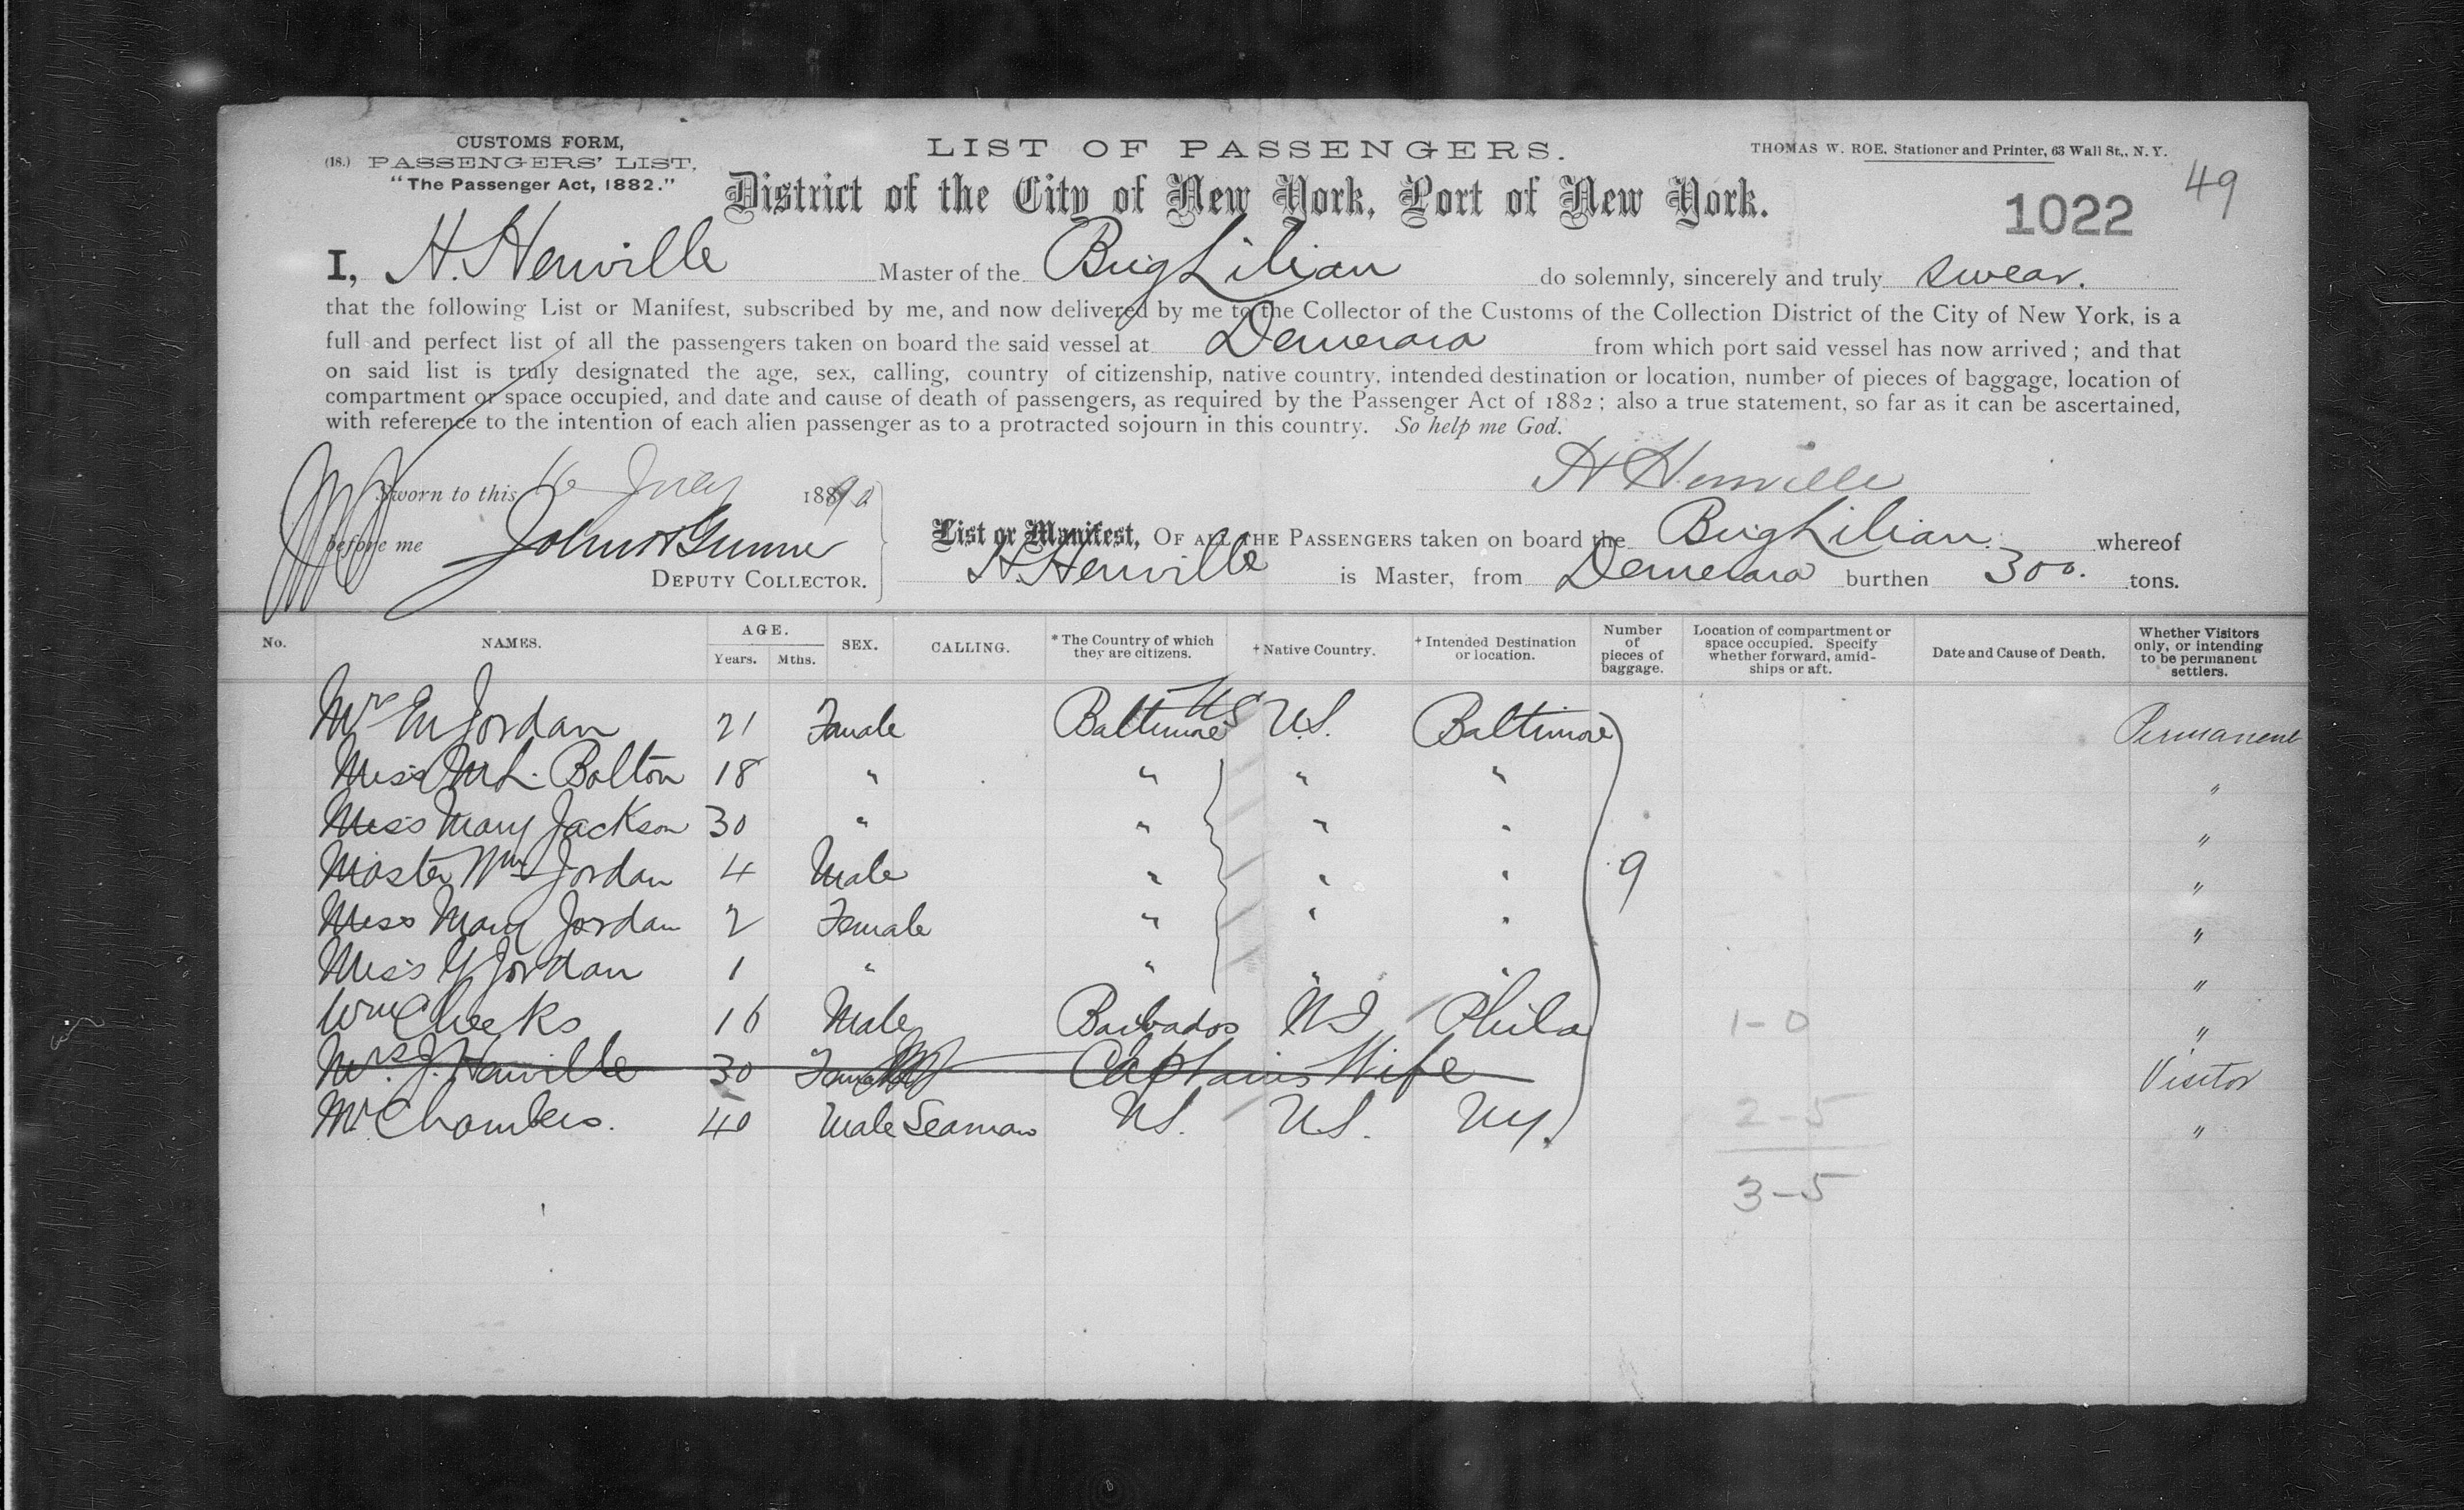 CUSTOMS FORM,
(18.) PASSENGERS' LIST.
"The Passenger Act, 1882."
LIST OF PASSENGERS.
THOMAS W. ROE, Stationer and Printer, 63 Wall St., N. Y.
49
District of the City of New York, Port of New York.
1022
I, H. Henville Master of the Brig Lilian do solemnly, sincerely and truly swear.
that the following List or Manifest, subscribed by me, and now delivered by me to the Collector of the Customs of the Collection District of the City of New York, is a
full and perfect list of all the passengers taken on board the said vessel at Demerara from which port said vessel has now arrived; and that
on said list is truly designated the age, sex, calling, country of citizenship, native country, intended destination or location, number of pieces of baggage, location of
compartment or space occupied, and date and cause of death of passengers, as required by the Passenger Act of 1882; also a true statement, so far as it can be ascertained,
with reference to the intention of each alien passenger as to a protracted sojourn in this country. So help me God.
H Henville
Sworn to this 16 July 1890
before me John
DEPUTY COLLECTOR.
List or Manifest, OF ALL THE PASSENGERS taken on board the Brig Lilian. whereof
H. Henville is Master, from Demerara burthen 300. tons.
No. NAMES. AGE. Years. Mths. SEX. CALLING. * The Country of which they are citizens. † Native Country. † Intended Destination or location. Number of pieces of baggage. Location of compartment or space occupied. Specify whether forward, amidships or aft. Date and Cause of Death. Whether Visitors only, or intending to be permanent settlers.
Mrs M Jordan 21 Female Baltimore US U.S. Baltimore Permanent
Miss M L. Bolton 18 " " " " "
Miss Mary Jackson 30 " " " " "
Master Wm Jordan 4 Male " " " 9 "
Miss Mary Jordan 2 Female " " " "
Miss Y Jordan 1 " " " " "
Wm Cheeks 16 Male Barbados W I Phila 1-0 "
Mrs. J. Henville 30 Female Captains Wife Visitor
Mr Chambers. 40 Male Seaman U.S. U.S. N Y. 2-5 "
3-5